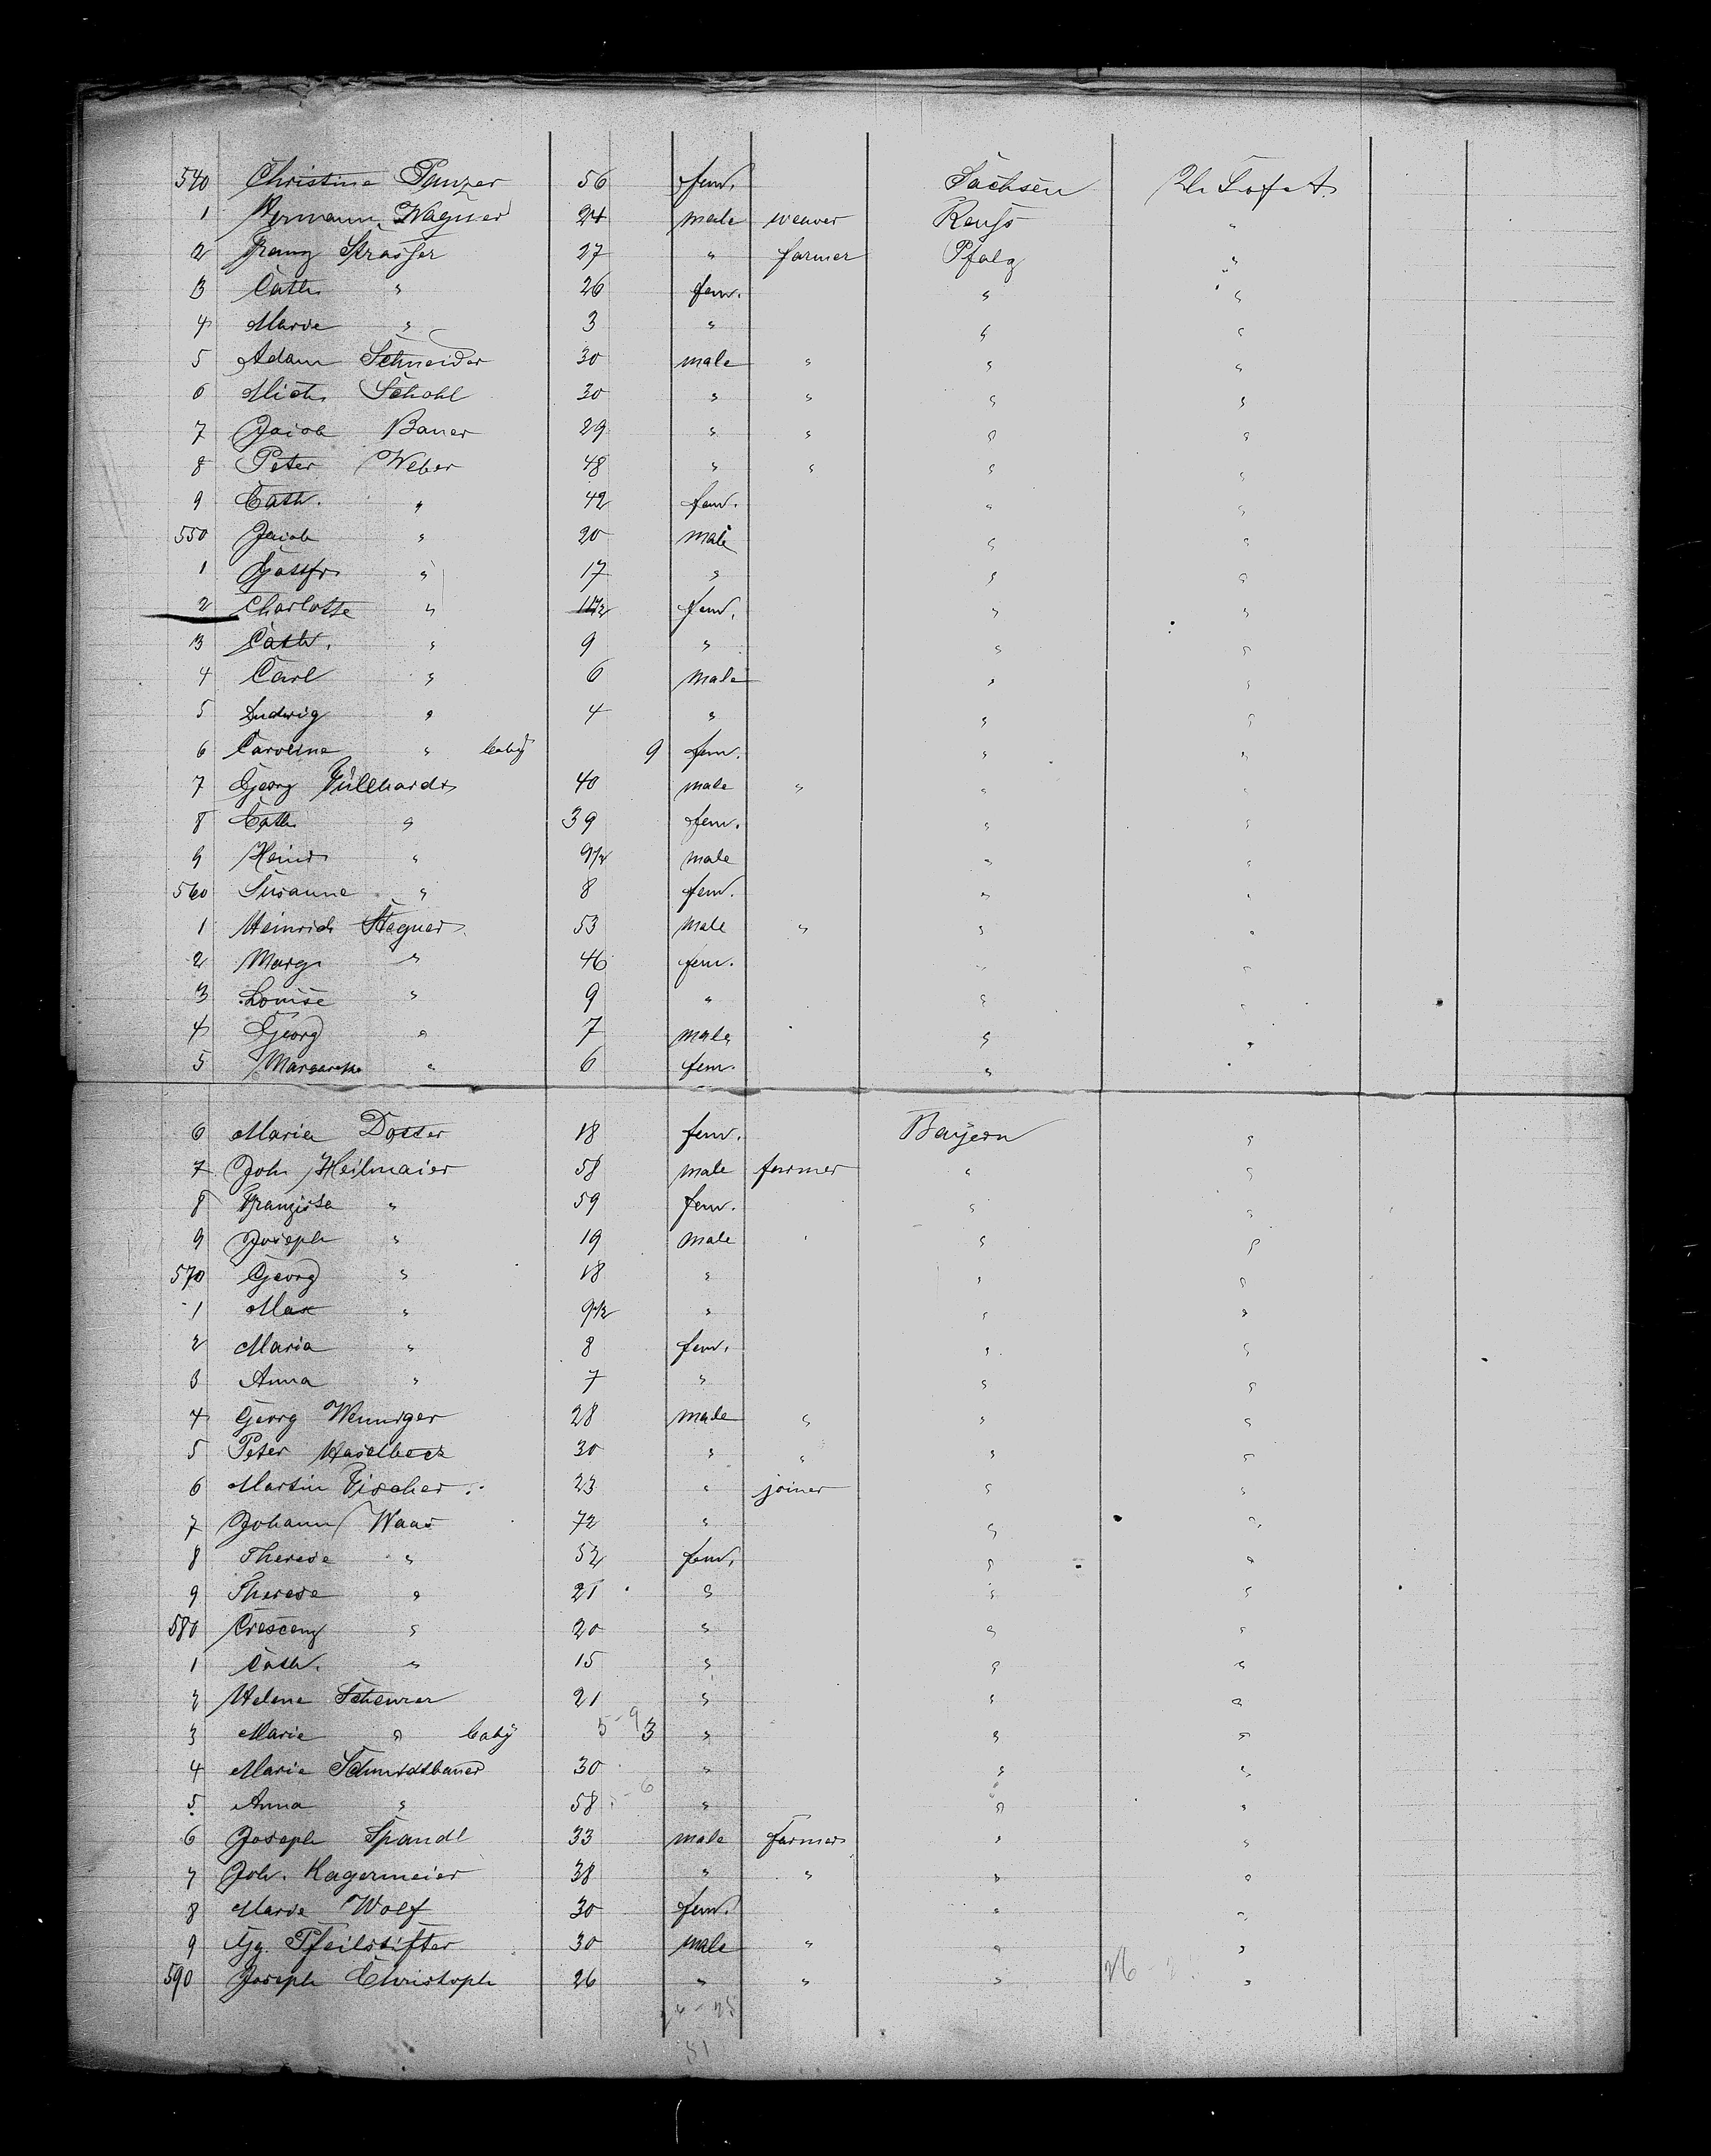 540 Christine Panzer 56 fem. Sachsen U. S. of A.
1 Hermann Wagner 24 male weaver Reuss "
2 Franz Strasser 27 " farmer Pfalz "
3 Cath. " 26 fem. " "
4 Marie " 3 " " "
5 Adam Schneider 30 male " " "
6 Mich. Schohl 30 " " " "
7 Jacob Bauer 29 " " " "
8 Peter Weber 48 " " " "
9 Cath. " 42 fem. " "
550 Jacob " 20 male " "
1 Gottfr. " 17 " " "
2 Charlotte " fem. " "
3 Cath. " 9 " " "
4 Carl " 6 male " "
5 Ludwig " 4 " " "
6 Caroline " baby 9 fem. " "
7 Georg 40 male " " "
8 Cath. " 39 fem. " "
9 Heinr. " 9 1/2 male " "
560 Susanne " 8 fem. " "
1 Heinrich Stegner 53 male " " "
2 Marg. " 46 fem. " "
3 Louise " 9 " " "
4 Georg " 7 male " "
5 Margarethe " 6 fem. " "
6 Maria 18 fem. Bayern "
7 Joh. Heilmaier 58 male farmer " "
8 Franziska " 59 fem. " "
9 Joseph " 19 male " "
570 Georg " 18 " " "
1 Max " 9 1/2 " " "
2 Maria " 8 fem. " "
3 Anna " 7 " " "
4 Georg Wenniger 28 male " " "
5 Peter Haselbeck 30 " " " "
6 Martin Fischer 23 " joiner " "
7 Johann Waas 72 " " "
8 Therese " 52 fem. " "
9 Therese " 21 " " "
580 Crescenz " 20 " " "
1 Cath. " 15 " " "
2 Helene Scheurer 21 " " "
3 Marie " baby 5-9 3 " " "
4 Marie Schmidtbauer 30 " " "
5 Anna " 58 " " "
6 Joseph Spandl 33 male farmer " "
7 Joh. Hagermeier 38 " " " "
8 Marie Wolf 30 fem. " "
9 Gg. Pfeilstifter 30 male " " "
590 Joseph Christoph 26 " " " "